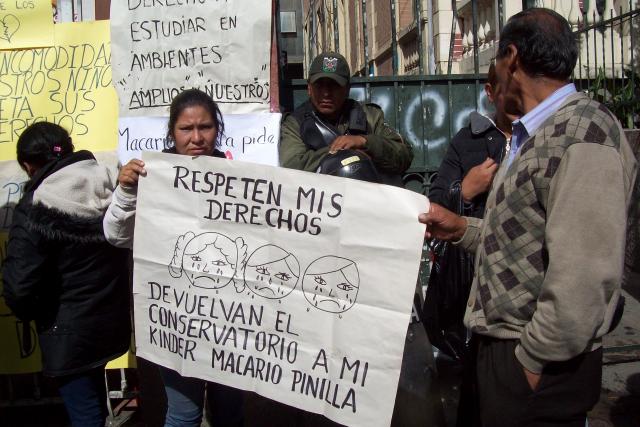 DERECHO A
ESTUDIAR EN
AMBIENTES
"AMPLIOS Y NUESTROS"
NCOMODIDA
STROS NIÑO
ETA SUS
ERECHOS
Macario
ra pide
RESPETEN MIS
DERECHOS
DEVUELVAN EL
CONSERVATORIO A MI
KINDER MACARIO PINILLA